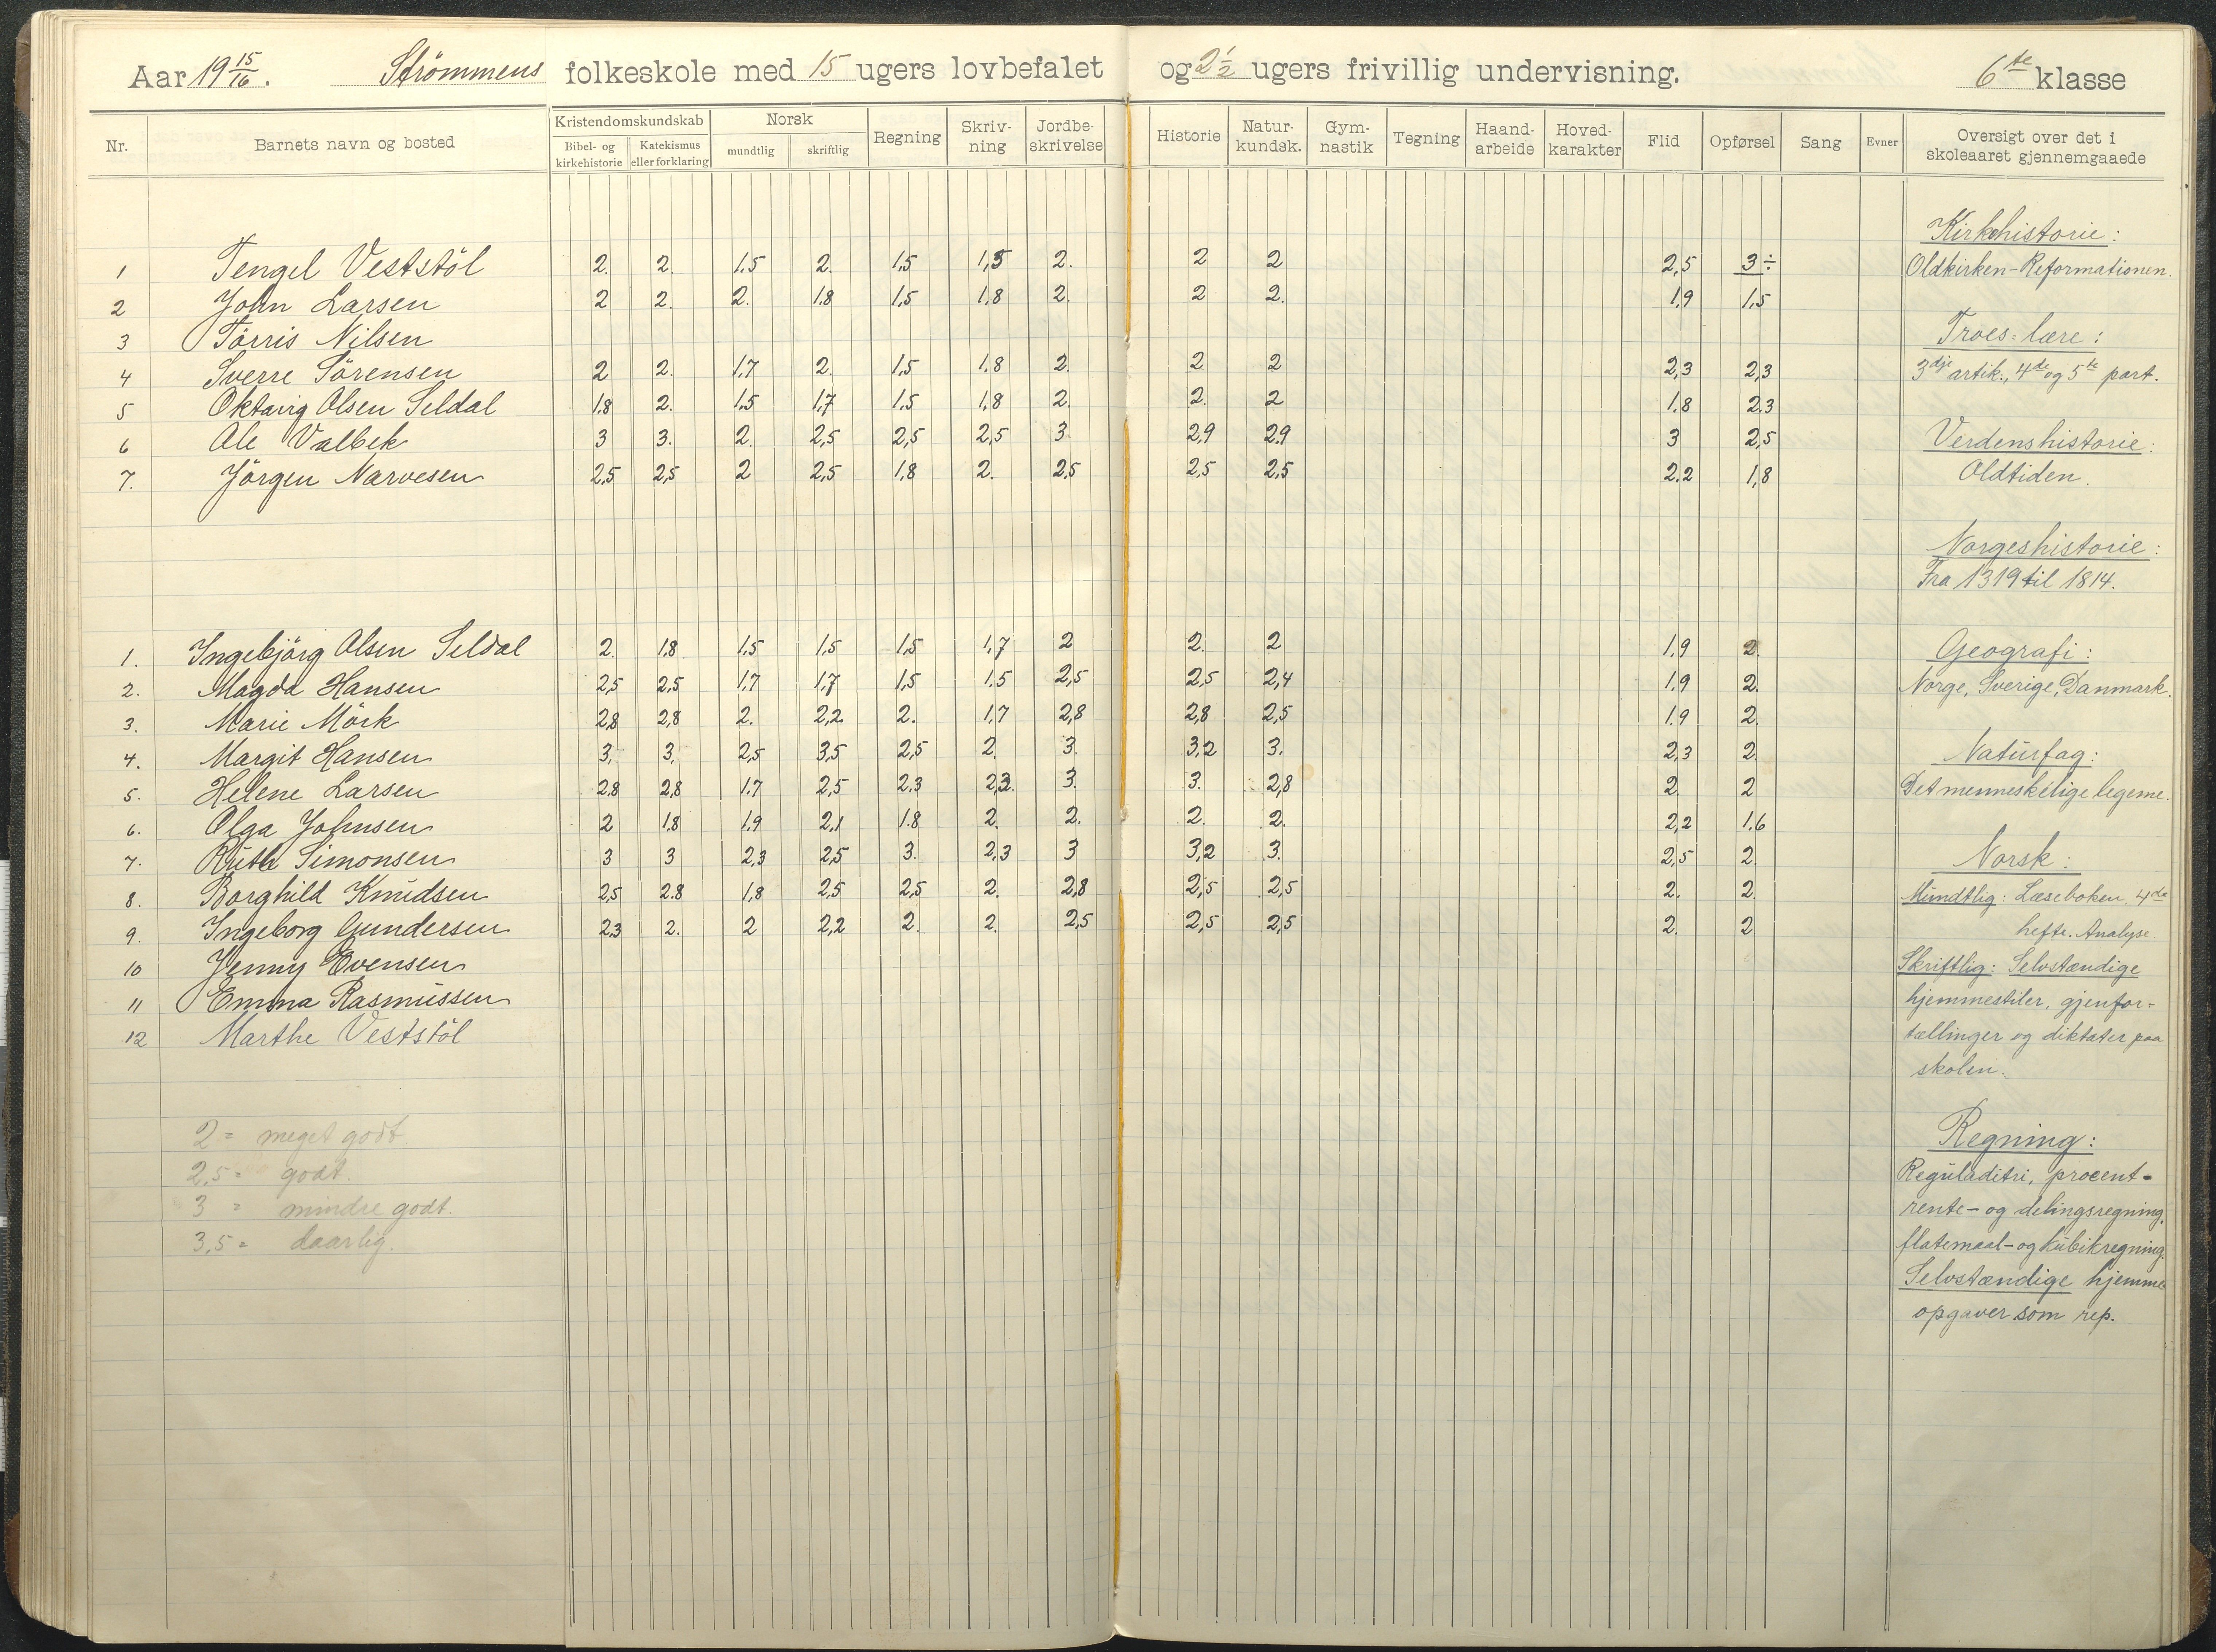 Aar 19 15/16. Strömmens folkeskole med 15 ugers lovbefalet og 2 1/2 ugers frivillig undervisning. 6te klasse
Nr. Barnets navn og bosted Kristendomskundskab Bibel- og kirkehistorie Katekismus eller forklaring Norsk mundtlig skriftlig Regning Skriv-ning Jordbe-skrivelse Historie Natur-kundsk. Gym-nastik Tegning Haand-arbeide Hoved-karakter Flid Opførsel Sang Evner Oversigt over det i skoleaaret gjennemgaaede
1 Tengel Veststöl 2. 2. 1.5 2. 1,5 1,5 2. 2 2 2,5 3÷
2 John Larsen 2 2. 2. 1.8 1,5 1,8 2. 2 2. 1,9 1,5
3 Törris Nilsen
4 Sverre Sörensen 2 2. 1.7 2. 1,5 1.8 2. 2 2 2,3 2,3
5 Oktavig Olsen Seldal 1.8 2. 1.5 1.7 1.5 1,8 2. 2. 2 1.8 2.3
6 Ole Valbek 3 3. 2. 2,5 2,5 2,5 3 2,9 2.9 3 2,5
7. Jörgen Narvesen 2,5 2,5 2 2,5 1,8 2. 2,5 2,5 2,5 2.2 1,8
1. Ingebjörg Olsen Seldal 2. 1.8 1.5 1,5 1,5 1,7 2 2. 2 1.9 2.
2. Magda Hansen 2,5 2,5 1.7 1.7 1,5 1.5 2,5 2,5 2,4 1.9 2.
3. Marie Mörk 2,8 2,8 2. 2,2 2. 1,7 2,8 2,8 2,5 1.9 2
4. Margit Hansen 3. 3. 2,5 3,5 2,5 2. 3. 3,2 3. 2,3 2.
5. Helene Larsen 2.8 2,8 1.7 2,5 2.3 2,2. 3. 3. 2,8 2. 2
6. Olga Johnsen 2 1.8 1.9 2,1 1.8 2. 2. 2. 2. 2,2 1.6
7. Ruth Simonsen 3 3 2,3 2,5 3. 2,3 3 3,2 3. 2,5 2
8. Borghild Knudsen 2,5 2.8 1,8 2,5 2,5 2. 2,8 2,5 2,5 2. 2.
9. Ingeborg Gundersen 2.3 2. 2 2,2 2. 2. 2,5 2,5 2,5 2. 2
10 Jenny Evensen
11 Emma Rasmussen
12 Marthe Veststöl
2 = meget godt.
2,5 = godt.
3 = mindre godt.
3,5 = daarlig.
Kirkehistorie:
Oldkirken-Reformationen.
Troes-lære:
3dje artik., 4de og 5te part.
Verdenshistorie:
Oldtiden.
Norgeshistorie:
Fra 1319 til 1814.
Geografi:
Norge, Sverige, Danmark.
Naturfag:
Det menneskelige legeme.
Norsk:
Mundtlig: Læseboken, 4de
hefte. Analyse.
Skriftlig: Selvstændige
hjemmestiler, gjenfor-
tællinger og diktater paa
skolen.
Regning:
Reguladitri, procent-
rente- og delingsregning,
flatemaal- og kubikregning.
Selvstændige hjemme
opgaver som rep.